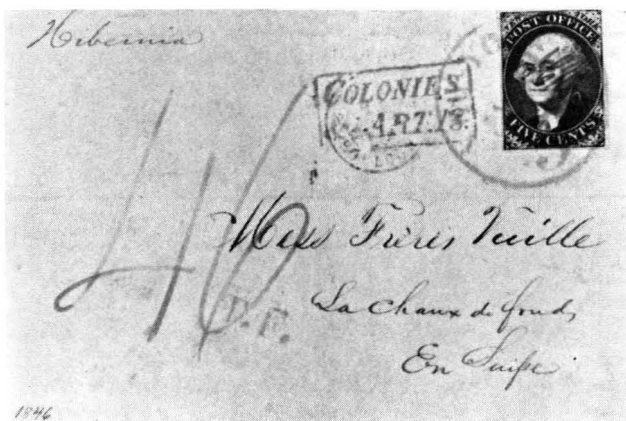 Hibernia
POST OFFICE
FIVE CENTS
COLONIES
ART. 13.
46
Mess Frères Vuille
La Chaux de fonds
En Suisse
1846